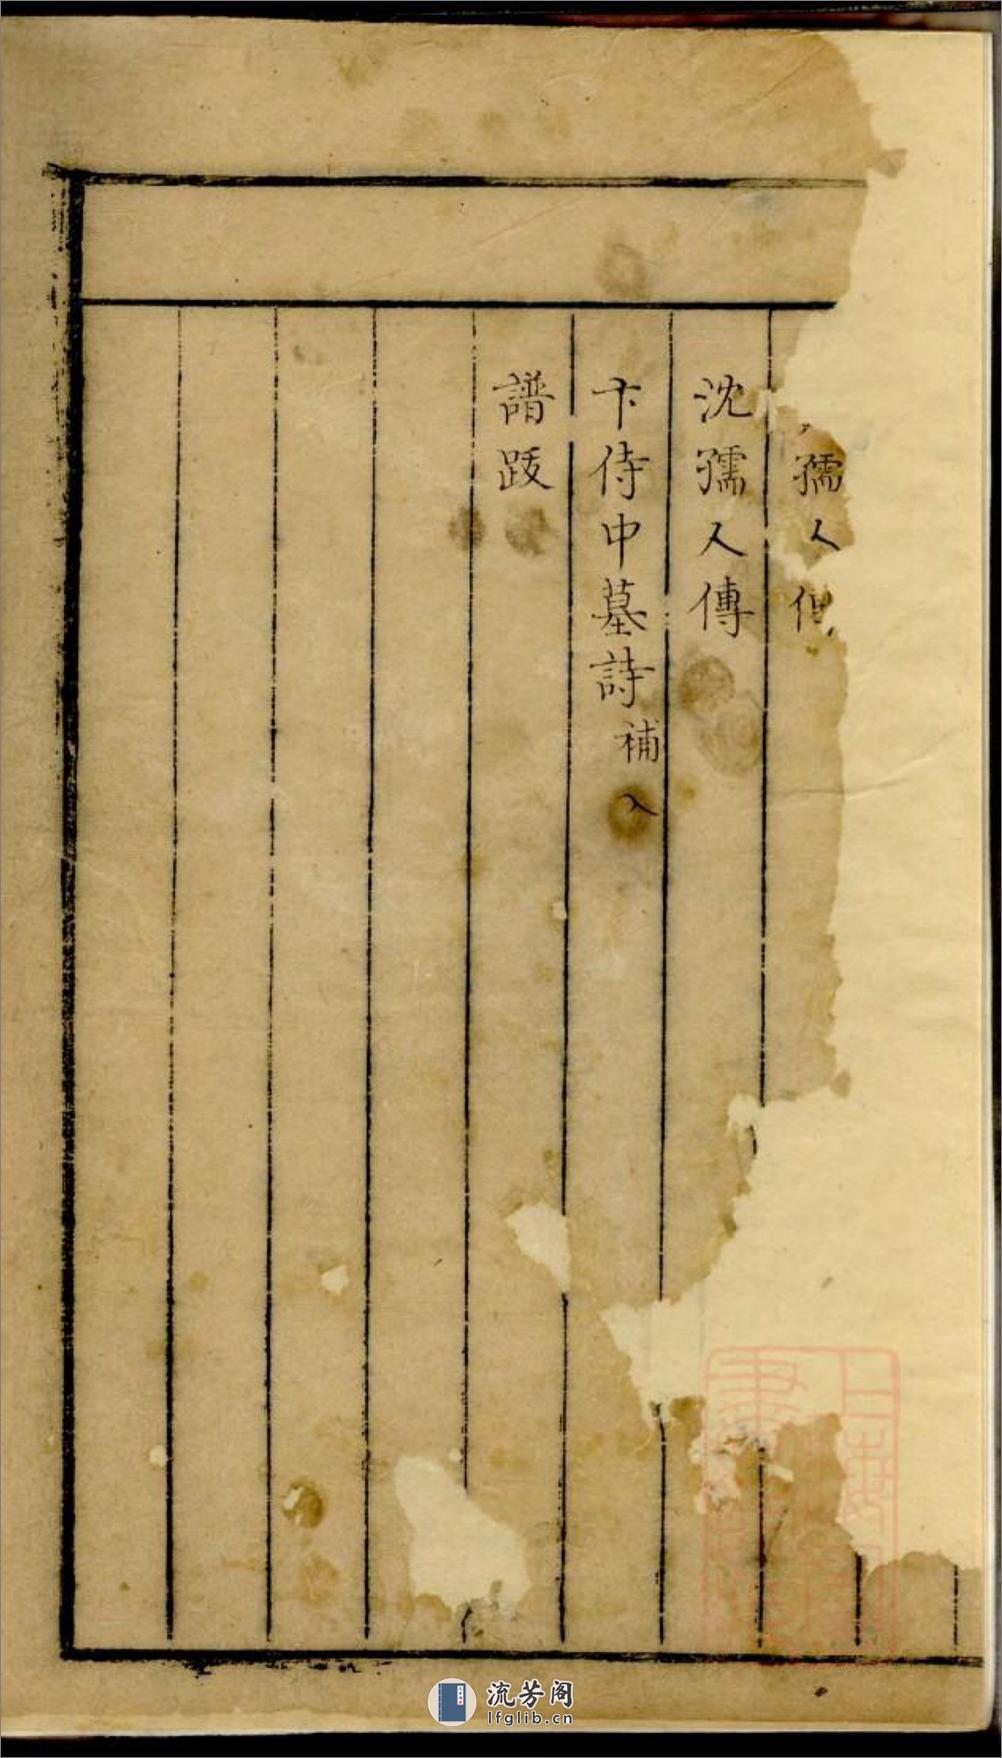 孺人傳
沈孺人傳
卞侍中墓詩補入
譜跋
流芳阁
lfglib.cn